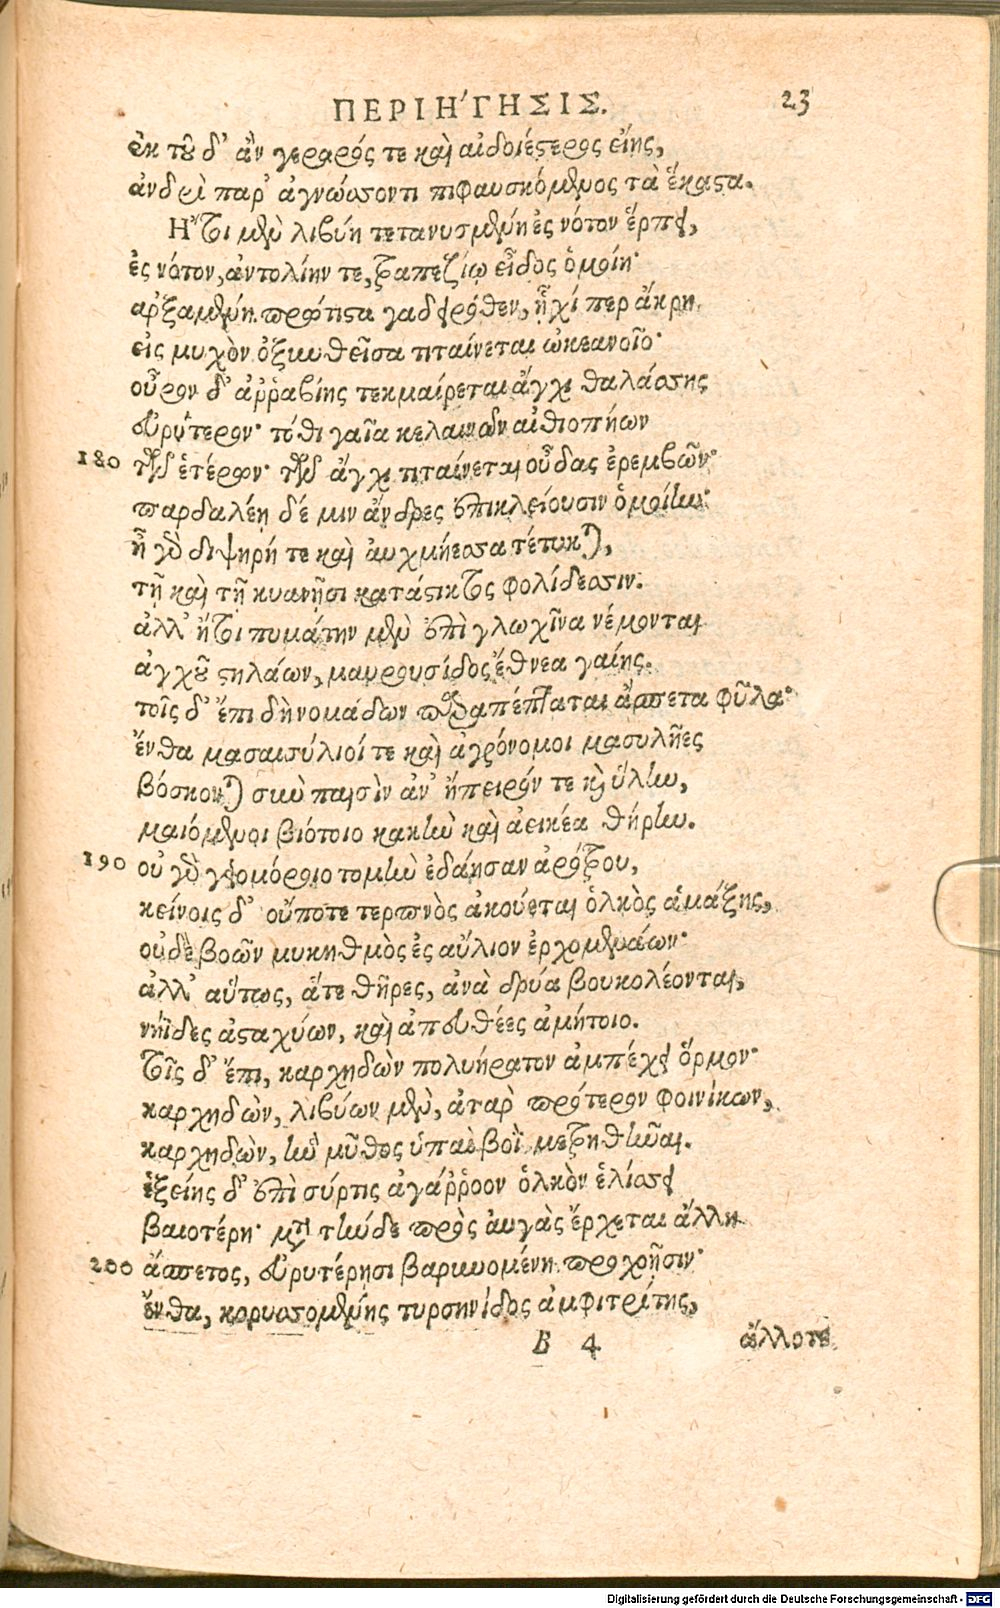 ΠΕΡΙΗΓΗΣΙΣ. 23
ἐκ τοῦ δ' ἂν γεραρός τε καὶ αἰδοιέστερος εἴης,
ἀνδρὶ παρ' ἀγνώσσοντι πιφαυσκόμενος τὰ ἕκαστα.
Ἤτοι μὲν λιβύη τετανυσμένη ἐς νότον ἕρπει,
ἐς νότον, ἀντολίην τε, τραπεζίῳ εἶδος ὁμοίη·
ἀρξαμένη πρώτιστα γαδειρόθεν, ἧχί περ ἄκρη
εἰς μυχὸν ὀξυνθεῖσα τιταίνεται ὠκεανοῖο·
οὖρον δ' ἀῤῥαβίης τεκμαίρεται ἄγχι θαλάσσης
εὐρύτερον· τόθι γαῖα κελαινῶν αἰθιοπήων
180 τῶν ἑτέρων· τῶν ἄγχι τιταίνεται οὖδας ἐρεμβῶν·
παρδαλέῃ δέ μιν ἄνδρες ἐπικλείουσιν ὁμοίην·
ἦ γὰρ διψηρή τε καὶ αὐχμήεσσα τέτυκται,
τῇ καὶ τῇ κυανῇσι κατάστικτος φολίδεσσιν.
ἀλλ' ἤτοι πυμάτην μὲν ἐπὶ γλωχῖνα νέμονται
ἀγχοῦ στηλάων, μαυρουσίδος ἔθνεα γαίης.
τοῖς δ' ἔπι δὴ νομάδων παραπέπταται ἄσπετα φῦλα·
ἔνθα μασαισύλιοί τε καὶ ἀγρόνομοι μασυλῆες
βόσκονται σὺν παισὶν ἀν' ἤπειρόν τε καὶ ὕλην,
μαιόμενοι βιότοιο κακὴν καὶ ἀεικέα θήρην.
190 οὐ γὰρ γειομόροιο τομὴν ἐδάησαν ἀρότρου,
κείνοις δ' οὔποτε τερπνὸς ἀκούεται ὁλκὸς ἁμάξης,
οὐδὲ βοῶν μυκηθμὸς ἐς αὔλιον ἐρχομενάων·
ἀλλ' αὔτως, ἅτε θῆρες, ἀνὰ δρύα βουκολέονται,
νήϊδες ἀσταχύων, καὶ ἀπευθέες ἀμήτοιο.
τοῖς δ' ἔπι, καρχηδὼν πολυήρατον ἀμπέχει ὅρμον·
καρχηδὼν, λιβύων μὲν, ἀτὰρ πρότερον φοινίκων,
καρχηδὼν, ἣν μῦθος ὑπαὶ βοῒ μετρηθῆναι.
ἑξείης δ' ἐπὶ σύρτις ἀγάῤῥοον ὁλκὸν ἑλίσσει
βαιοτέρη· μετὰ τήνδε πρὸς αὐγὰς ἔρχεται ἄλλη
200 ἄσπετος, εὐρυτέρῃσι βαρυνομένη προχοῇσιν·
ἔνθα, κορυσσομένης τυρσηνίδος ἀμφιτρίτης,
B 4 ἄλλοτε
Digitalisierung gefördert durch die Deutsche Forschungsgemeinschaft - DFG